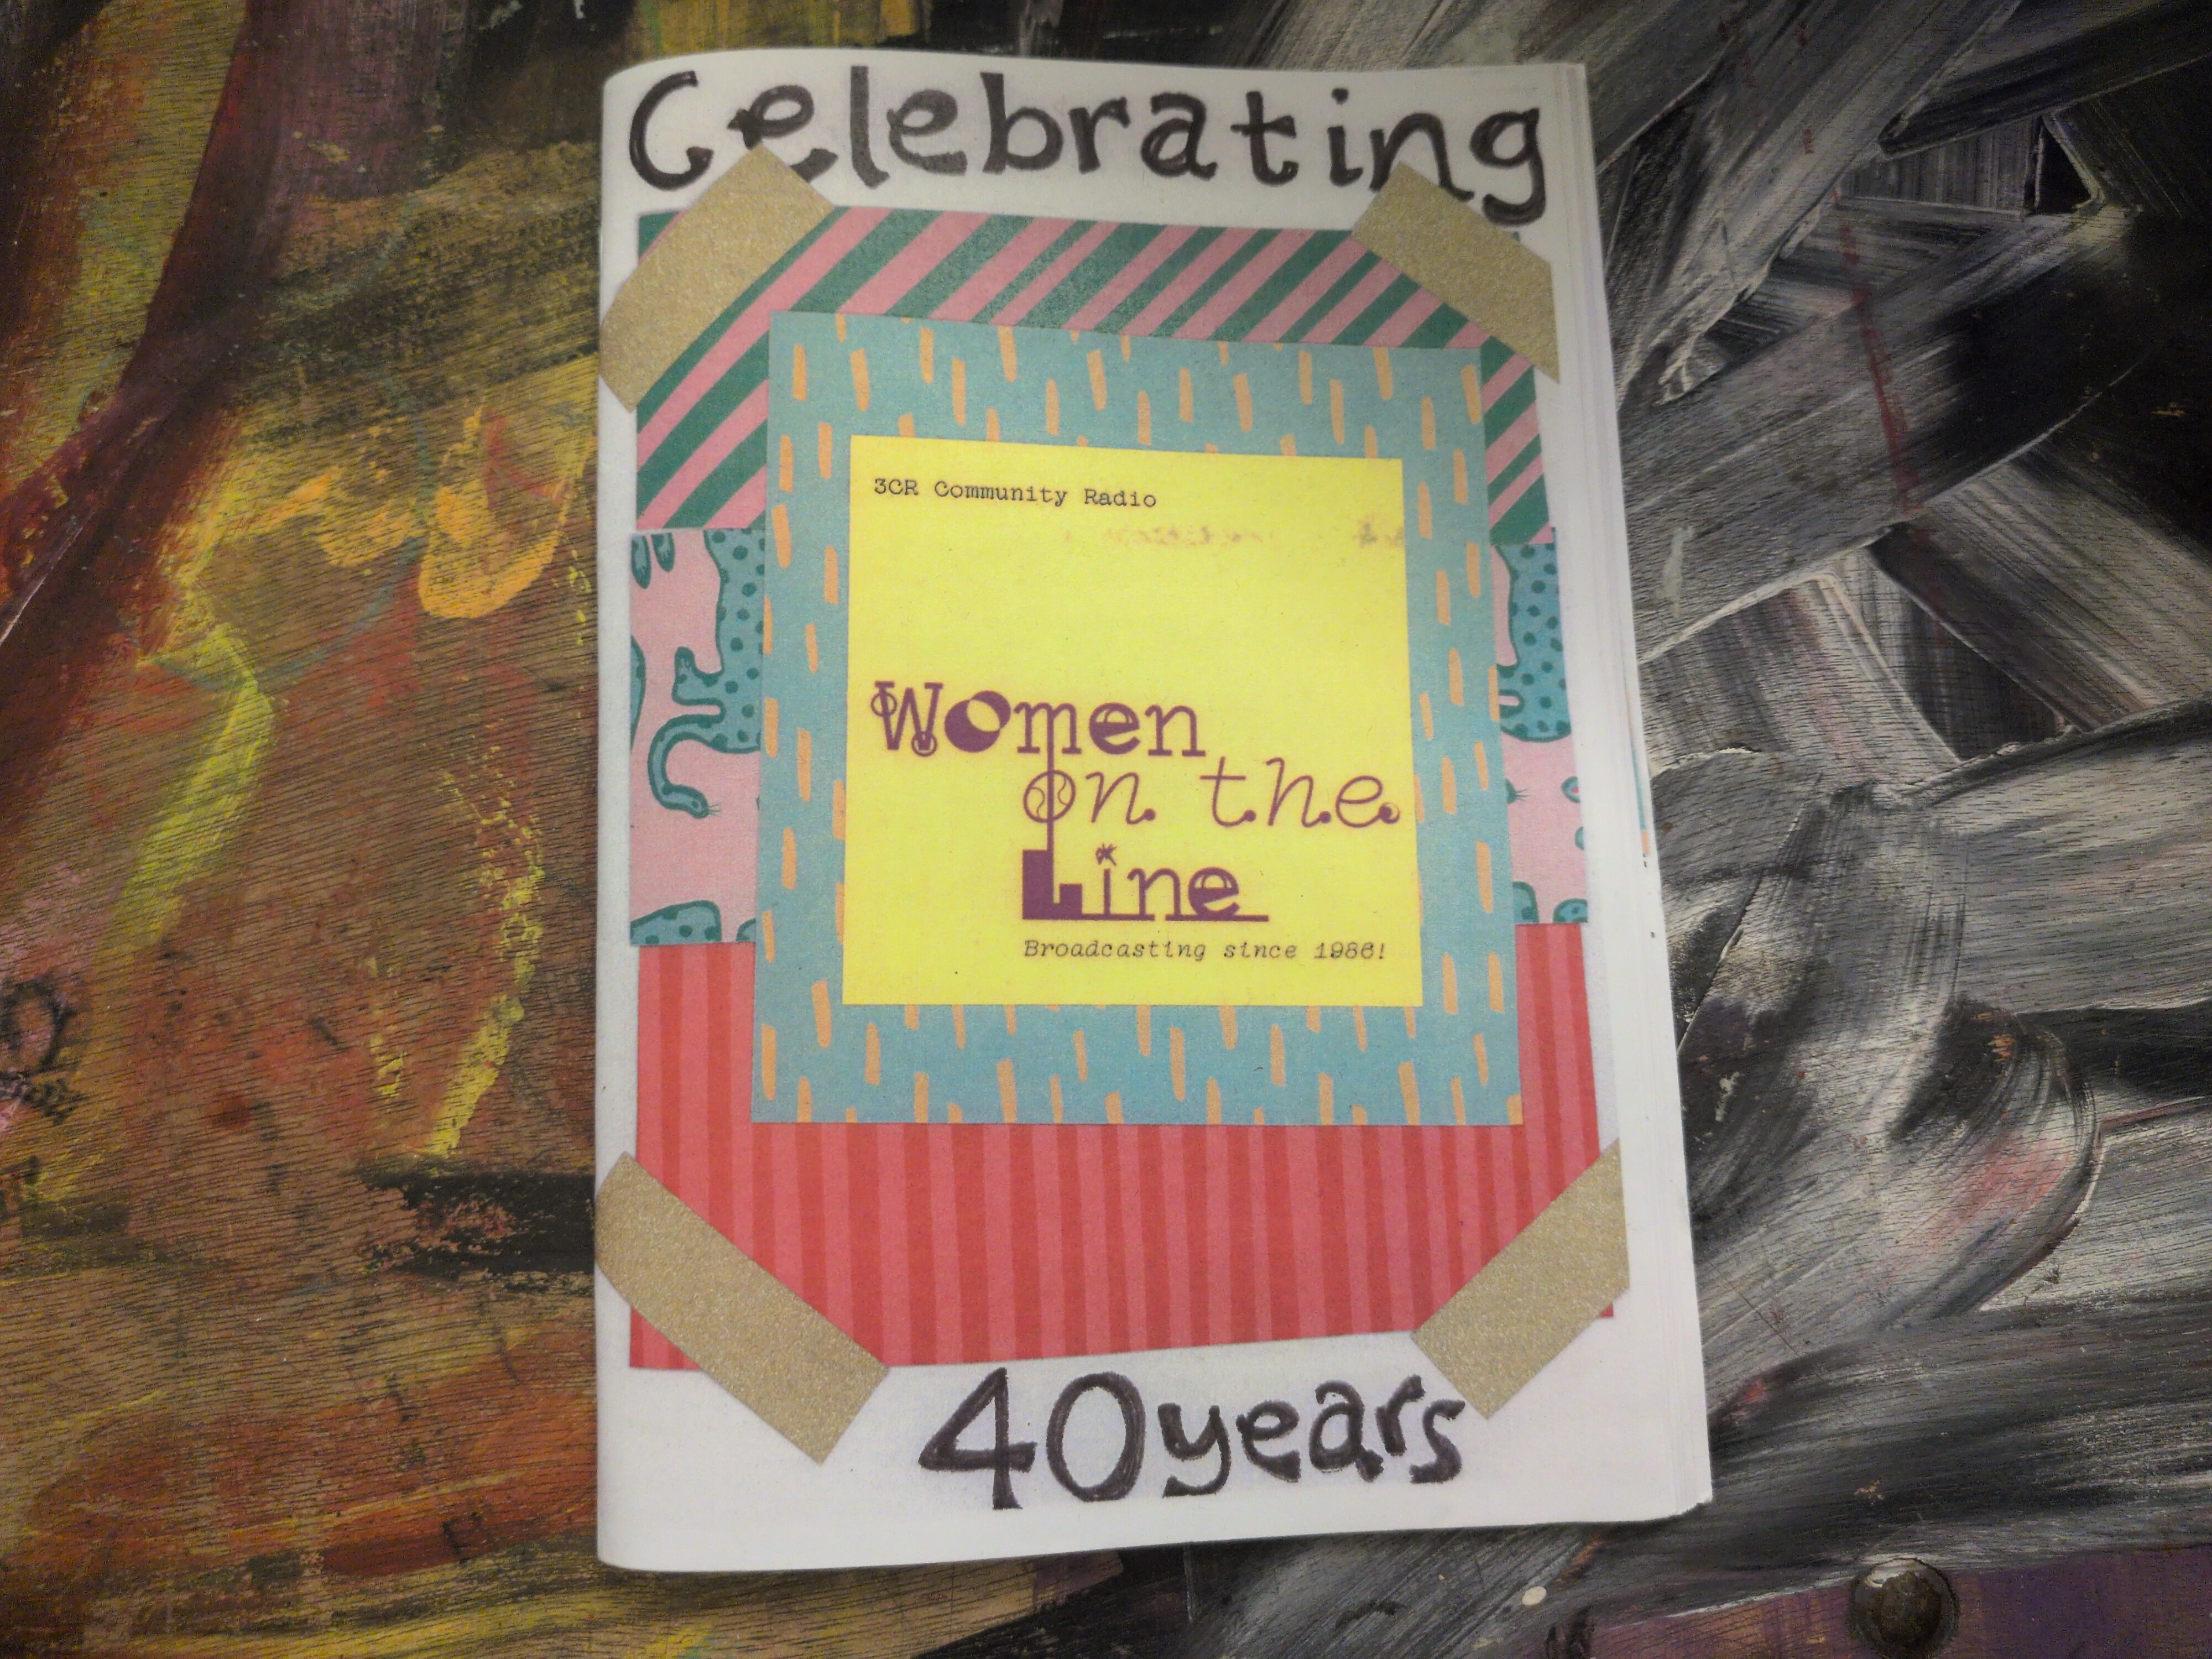 Celebrating
3CR Community Radio
Women
on the
Line
Broadcasting since 1986!
40 years